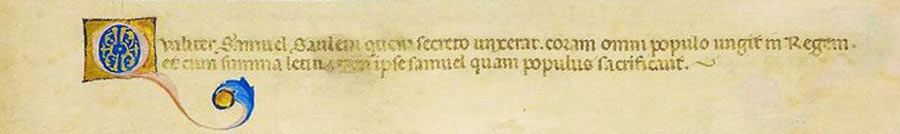 Qualiter Samuel Saulem quem secreto unxerat. coram omni populo ungit in Regem.
et cum summa letitia tam ipse samuel quam populus sacrificavit.